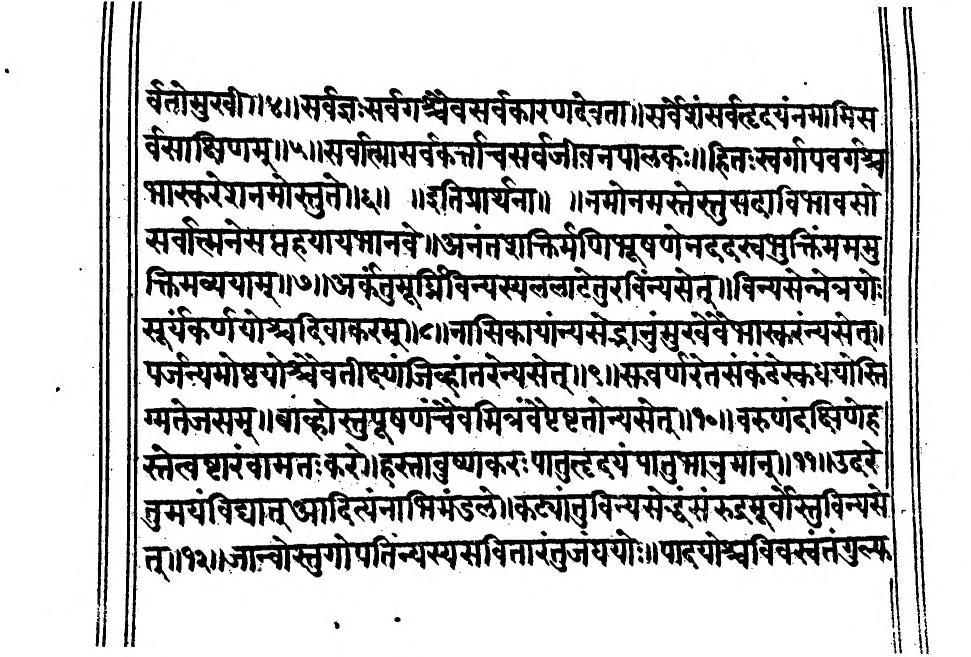 र्वतोमुखी॥४॥सर्वज्ञःसर्वगश्चैवसर्वकारणदेवता॥सर्वेशंसर्वहृदयंनमामिस
र्वसाक्षिणम्॥५॥सर्वात्मासर्वकर्त्ताचसर्वजीवनपालकः॥हितःस्वर्गापवर्गश्च
भास्करेशनमोस्तुते॥६॥ ॥इतिप्रार्थना॥ ॥नमोनमस्तेस्तुसदाविभावसो
सर्वात्मनेसप्तहयायभानवे॥अनंतशक्तिर्मणिभूषणेनददस्वभुक्तिंमममु
क्तिमव्ययाम्॥७॥अर्कंतुमूर्ध्निविन्यस्यललाटेतुरविंन्यसेत्॥विन्यसेन्नेत्रयोः
सूर्यंकर्णयोश्चदिवाकरम्॥८॥नासिकायांन्यसेद्भानुंमुखेवैभास्करंन्यसेत्॥
पर्जन्यमोष्ठयोश्चैवतीक्ष्णंजिव्हांतरेन्यसेत्॥९॥सवर्णरेतसंकंठेस्कंधयोस्ति
ग्मतेजसम्॥बाव्होस्तुपूषणंचैवमित्रंवैपृष्टतोन्यसेत्॥१०॥वरुणंदक्षिणेह
स्तेत्वष्टारंवामतःकरे॥हस्तावुष्णकरःपातुहृदयंपातुभानुमान्॥११॥उदरे
तुमयंविद्यात्आदित्यंनाभिमंडले॥कट्यांतुविन्यसेद्धंसंरुद्रमूर्वोस्तुविन्यसे
त्॥१२॥जान्वोस्तुगोपतिंन्यस्यसवितारंतुजंघयोः॥पादयोश्चविवस्वंतंगुल्फ